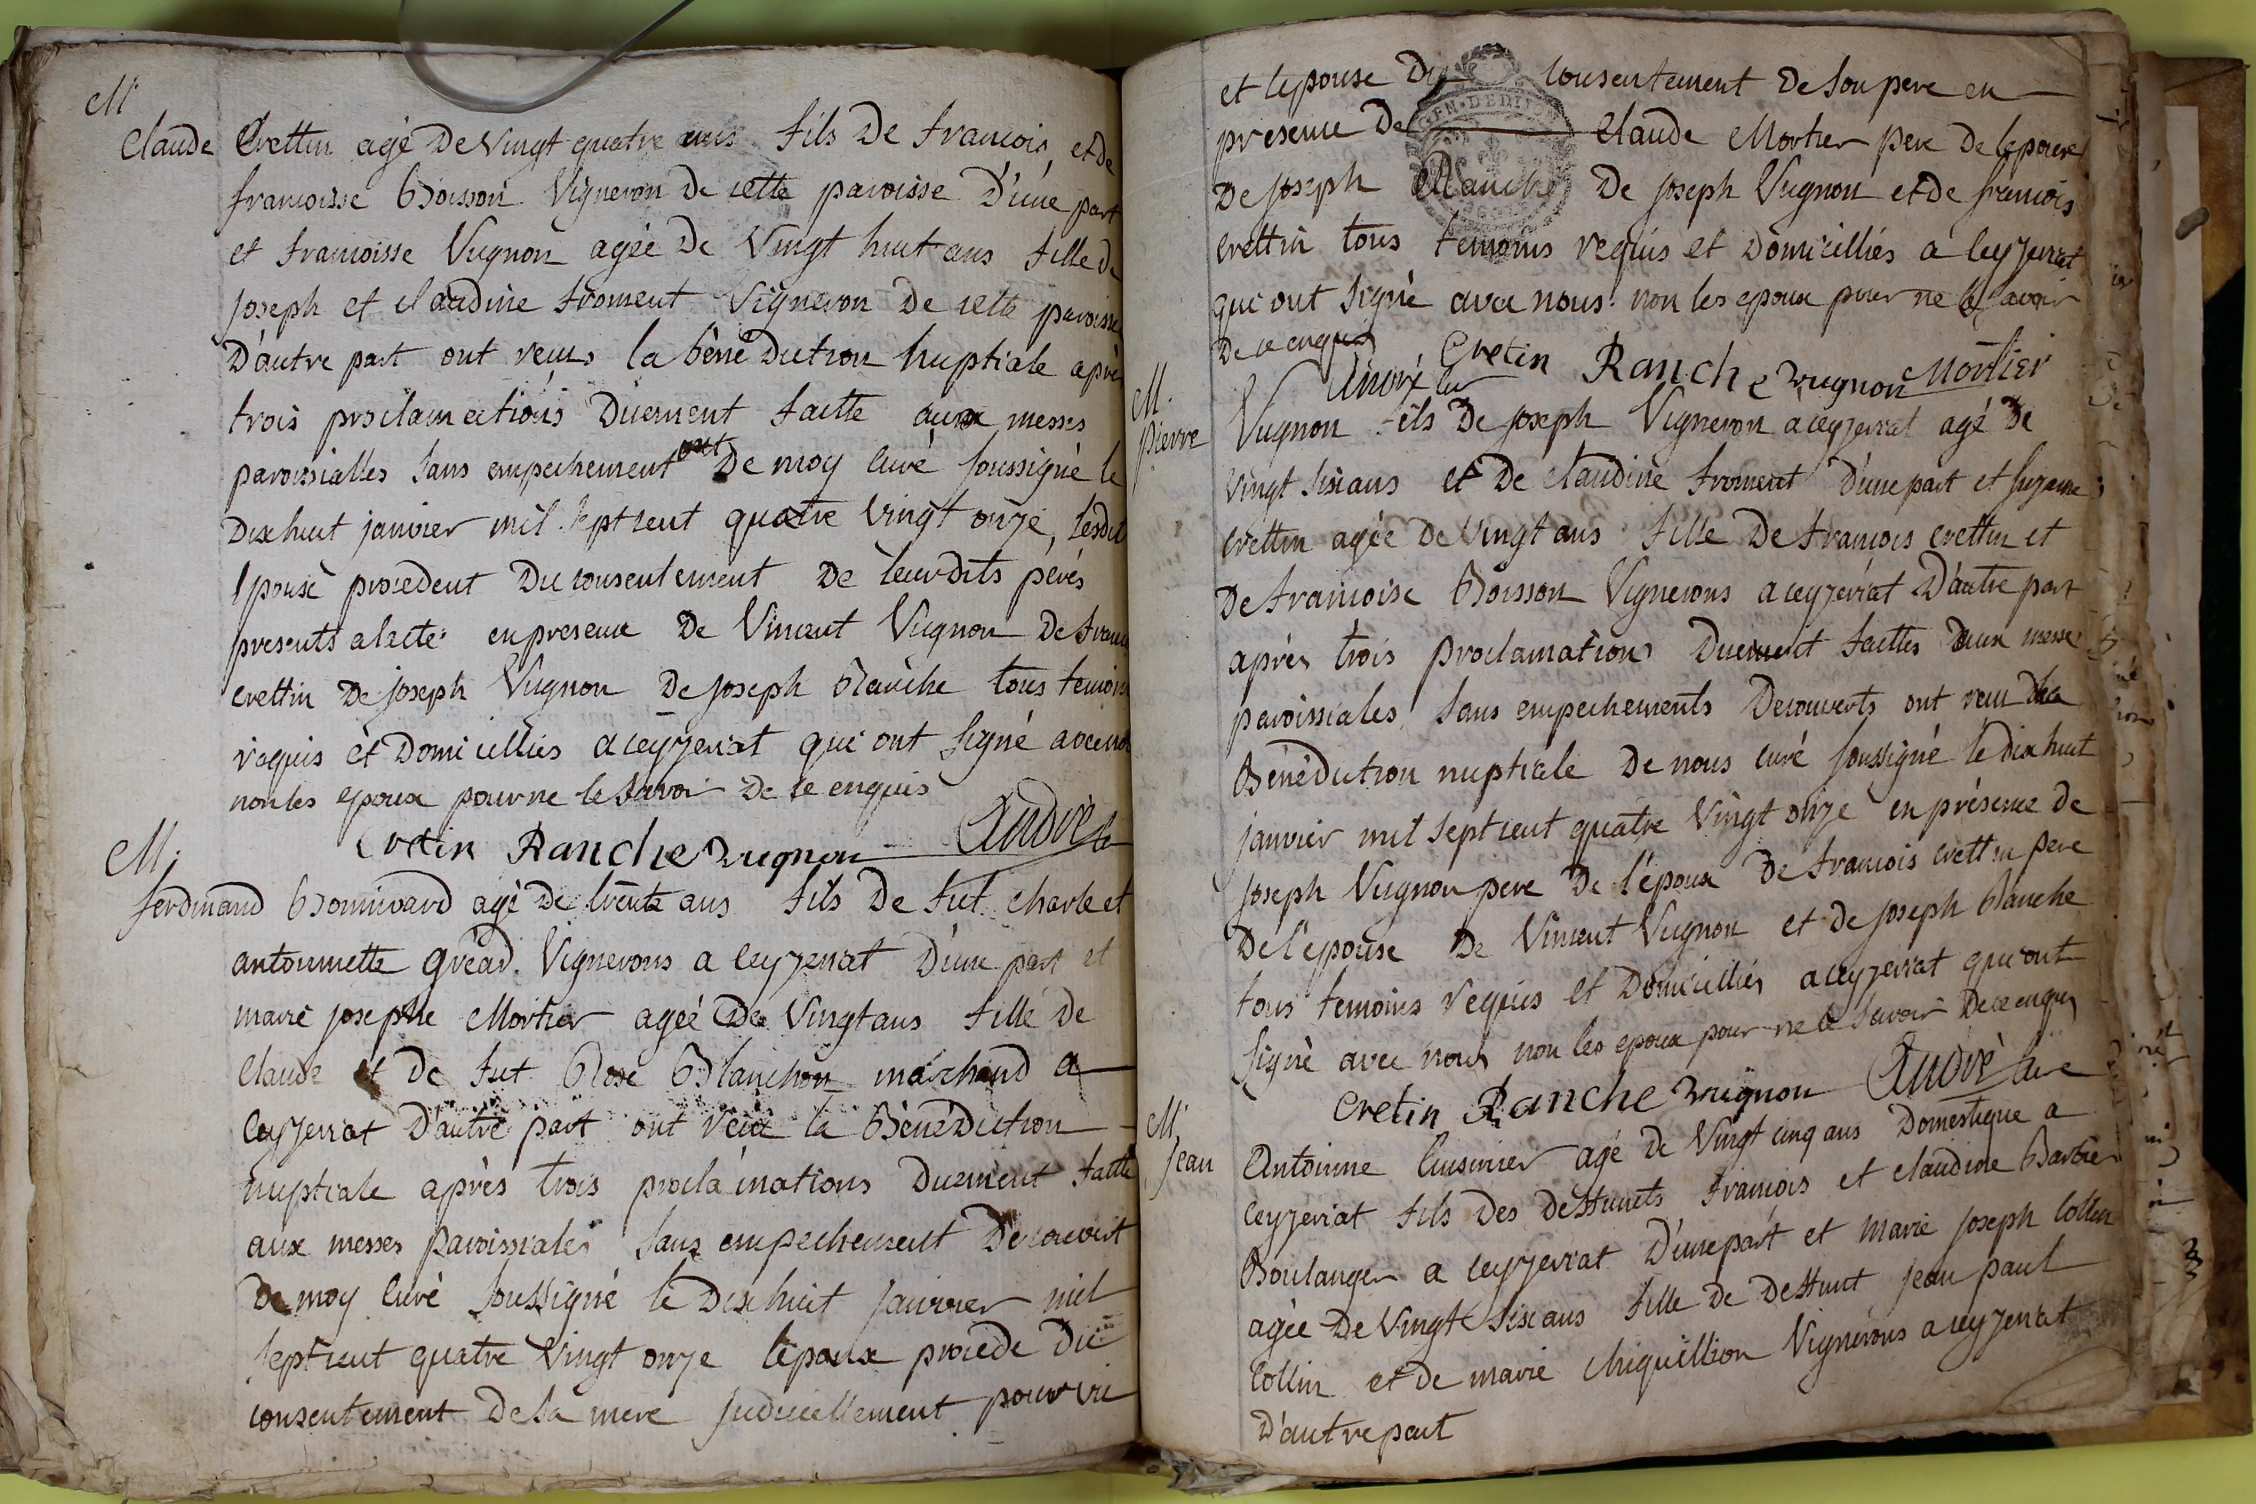 M.
Claude Crettin agé de vingt quatre ans fils de francois et de
francoisse Boisson Vigneron de cette paroisse d'une part
et francoisse Vugnon agée de Vingt huit ans fille de
joseph et claudine froment Vigneron de cette paroisse
D'autre part ont reçus la bénédiction nuptiale après
trois proclamations duement faitte aux messes
paroissialles sans empechement ont De moy curé soussigné le
Dix huit janvier mil sept cent quatre vingt onze, lesdit
Epouse procedent du consentement de leurdits péres
presents alacte en presence De Vincent Vugnon De
crettin De joseph Vugnon De joseph Blanche tous temoins
requis et Domicilliés a ceyzeriat qui ont signé avec
non les epoux pour ne le savoir De ce enquis
Cretin Ranche vugnon André
M.
ferdinand Bonnivard agé de trente ans fils de fut charle et
antoinnette gréad Vignerons a ceyzeriat D'une part et
marie josephe Mortier agée De Vingt ans fille de
Claude et de fut Rose Blanchon marchand a
Ceyzeriat D'autre part ont reçu la Bénédiction
nuptiale après trois proclamations duement faitte
aux messes paroissiales sans empechement Decouvert
De moy Curé soussigné le Dix huit janvier mil
sept cent quatre Vingt onze l'epoux procede du
consentement De sa mere judiciellement pourvu
et lepouse Du consentement De son pere en
presence De Claude Mortier pere De lepouse
De joseph Blanche De joseph Vugnon et de francois
crettin tous temoins requis et Domicilliés a ceyzeriat
qui ont signé avec nous non les epoux pour ne le savoir
De ce enquis Cretin Ranche vugnon Mortier
André cur
M.
pierre Vugnon fils De joseph Vigneron a ceyzeriat agé de
Vingt sixi ans et De claudine froment D'une part et suzanne
crettin agée de Vingt ans fille De francois crettin et
De francoise Boisson Vignerons a ceyzeriat D'autre part
après trois proclamations Duement faittes aux messe
paroissiales sans empechements Decouverts ont reçu la
Bénédiction nuptiale De nous curé soussigné le dix huit
janvier mil sept cent quatre Vingt onze en présence de
joseph Vugnon pere De l'époux De francois crettin pere
De l'epouse De Vincent Vugnon et de joseph Blanche
tous temoins requis et Domicilliés a ceyzeriat qui ont
signé avec nous non les epoux pour ne le savoir De ce enquis
Cretin Ranche vugnon André curé
M.
Jean Antoinne Cuisinier agé de Vingt cinq ans Domestique a
ceyzeriat fils des deffunts francois et claudine Barbier
Boulanger a ceyzeriat D'une part et Marie joseph Collin
agée De Vingt sixi ans fille de deffunt jean paul
Collin et de marie chiquillion Vignérons a ceyzeriat
D'autre part